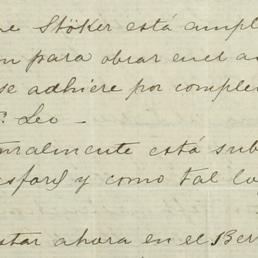 Stöker está ampl
para obrar en el a
se adhiere por comple
Leo —
uralmente está sub
esford y como tal lo
star ahora en el Ber